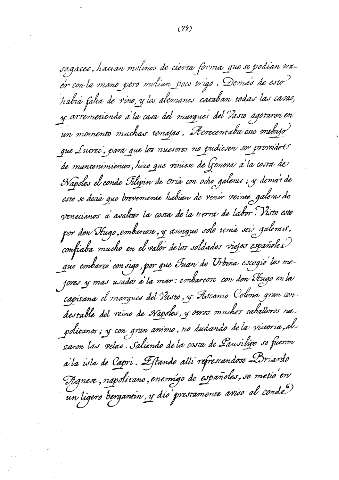 sagaces, hacian molinos de cierta forma que se podian tra-
er con la mano pero molian poco trigo. Demas de esto
habia falta de vino, y los alemanes cataban todas las casas,
y arremetiendo a la casa del marques del Vasto agotaron en
un momento muchas tinajas. Acrecentaba este trabajo
que Lutrec, para que los nuestros no pudiesen ser proveidos
de mantenimientos, hizo que viniese de Genova a la costa de
Napoles el conde Filipin de Oria con ocho galeras; y demas de
esto se decia que brevemente habian de venir veinte galeras de
venecianos á asaltar la costa de la tierra de labor. Visto esto
por don Hugo, embarcose, y aunque solo tenia seis galeras,
confiaba mucho en el valor de los soldados viejos españoles
que embarcó consigo, por que Juan de Urbina escogió los me-
jores y mas usados á la mar: embarcose con don Hugo en la
capitana el marques del Vasto, y Ascanio Colona gran con-
destable del reino de Napoles, y otros muchos caballeros na-
politanos; y con gran animo, no dudando de la victoria, al-
zaron las velas. Saliendo de la costa de Pausilipo se fueron
á la isla de Capri. Estando alli refrescandose Briardo
Agnese, napolitano, enemigo de españoles, se metió en
un ligero bergantin, y dió prestamente aviso al conde